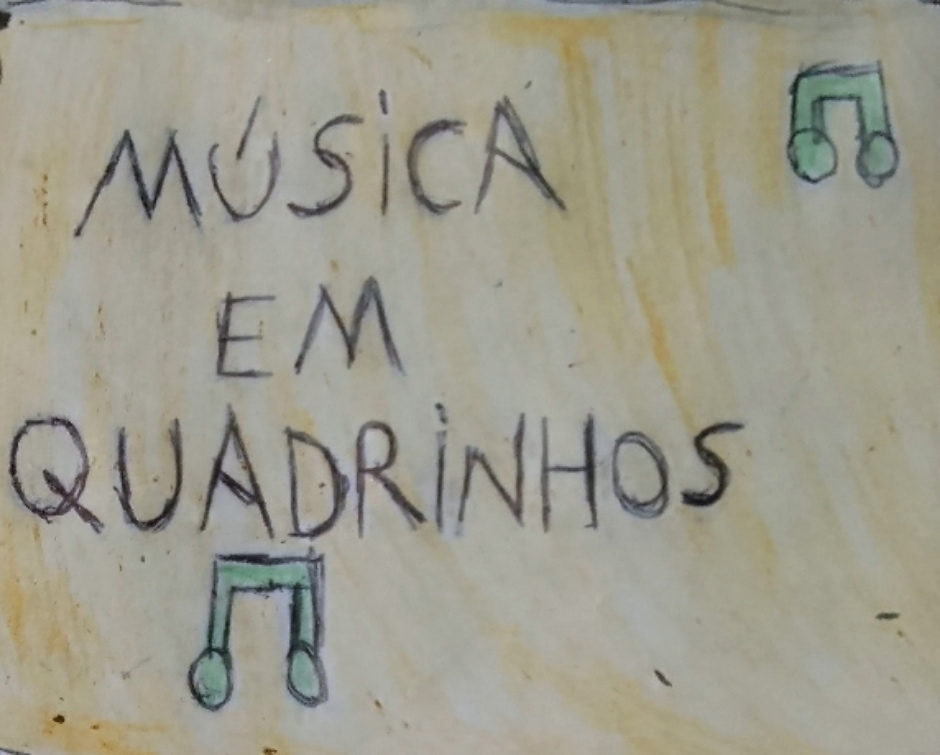 MÚSiCA
EM
QUADRiNHOS